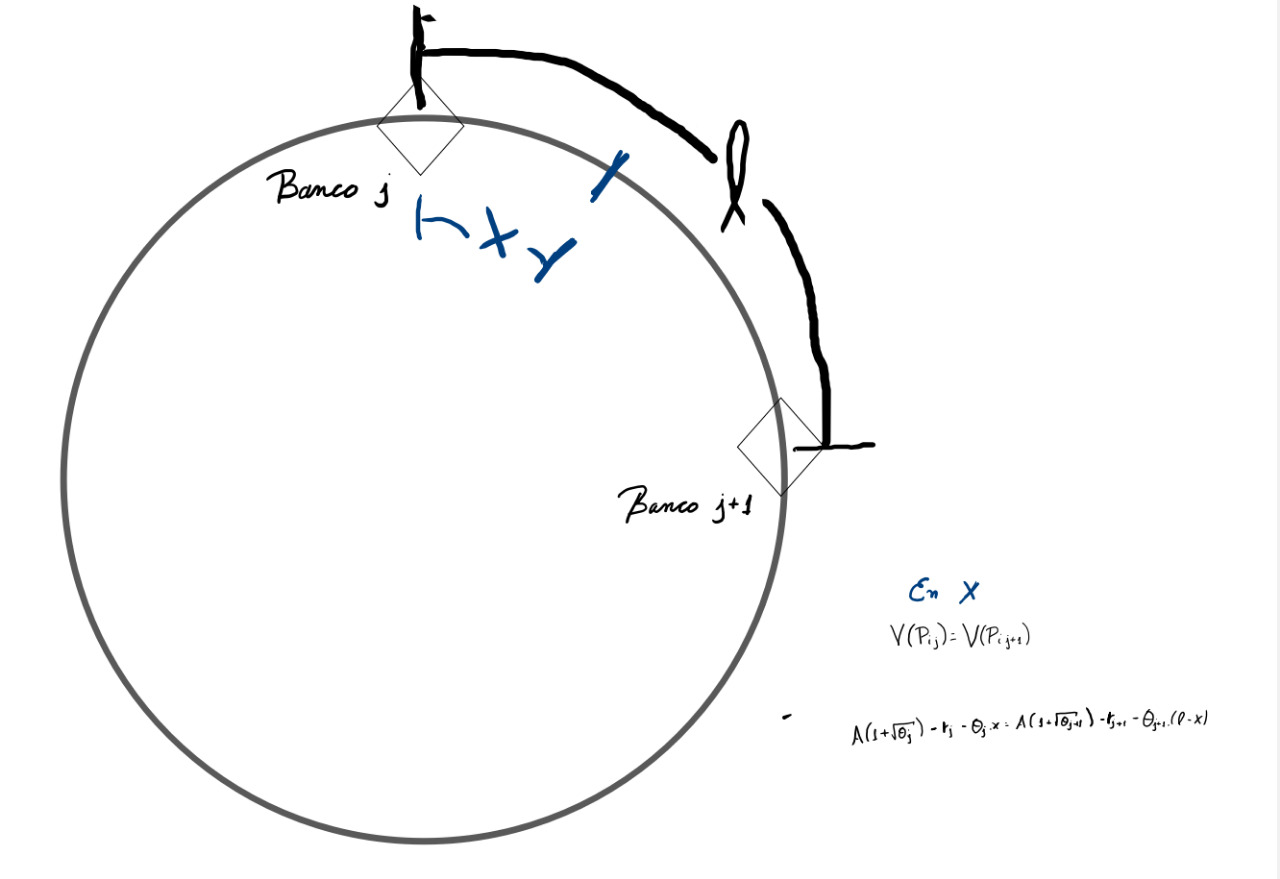 l
Banco j
x
Banco j+1
En X
V(P_{ij}) = V(P_{ij+1})
A(1+√θ_j) - r_j - θ_j·x = A(1+√θ_{j+1}) - r_{j+1} - θ_{j+1}·(l-x)